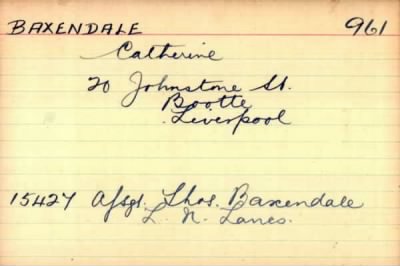 BAXENDALE 961
Catherine
20 Johnstone St.
Bootle
Liverpool
15427 A/Sgt. Thos. Baxendale
L. N. Lancs.